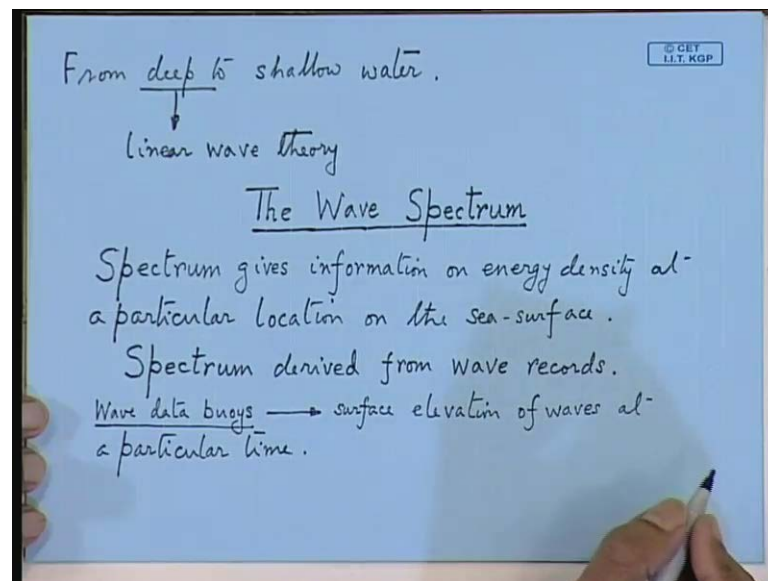 © CET
I.I.T. KGP
From deep to shallow water.
linear wave theory
The Wave Spectrum
Spectrum gives information on energy density at
a particular location on the sea-surface.
Spectrum derived from wave records.
Wave data buoys → surface elevation of waves at
a particular time.